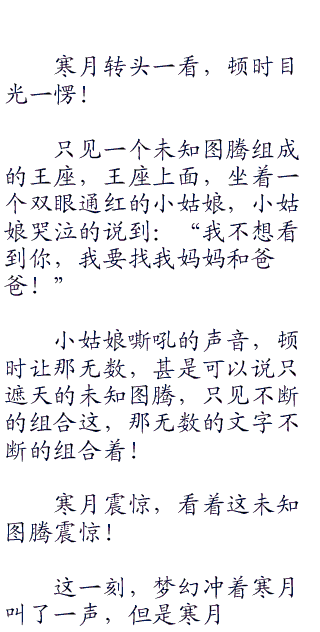 寒月转头一看，顿时目
光一愣！
只见一个未知图腾组成
的王座，王座上面，坐着一
个双眼通红的小姑娘，小姑
娘哭泣的说到：“我不想看
到你，我要找我妈妈和爸
爸！”
小姑娘嘶吼的声音，顿
时让那无数，甚是可以说只
遮天的未知图腾，只见不断
的组合这，那无数的文字不
断的组合着！
寒月震惊，看着这未知
图腾震惊！
这一刻，梦幻冲着寒月
叫了一声，但是寒月